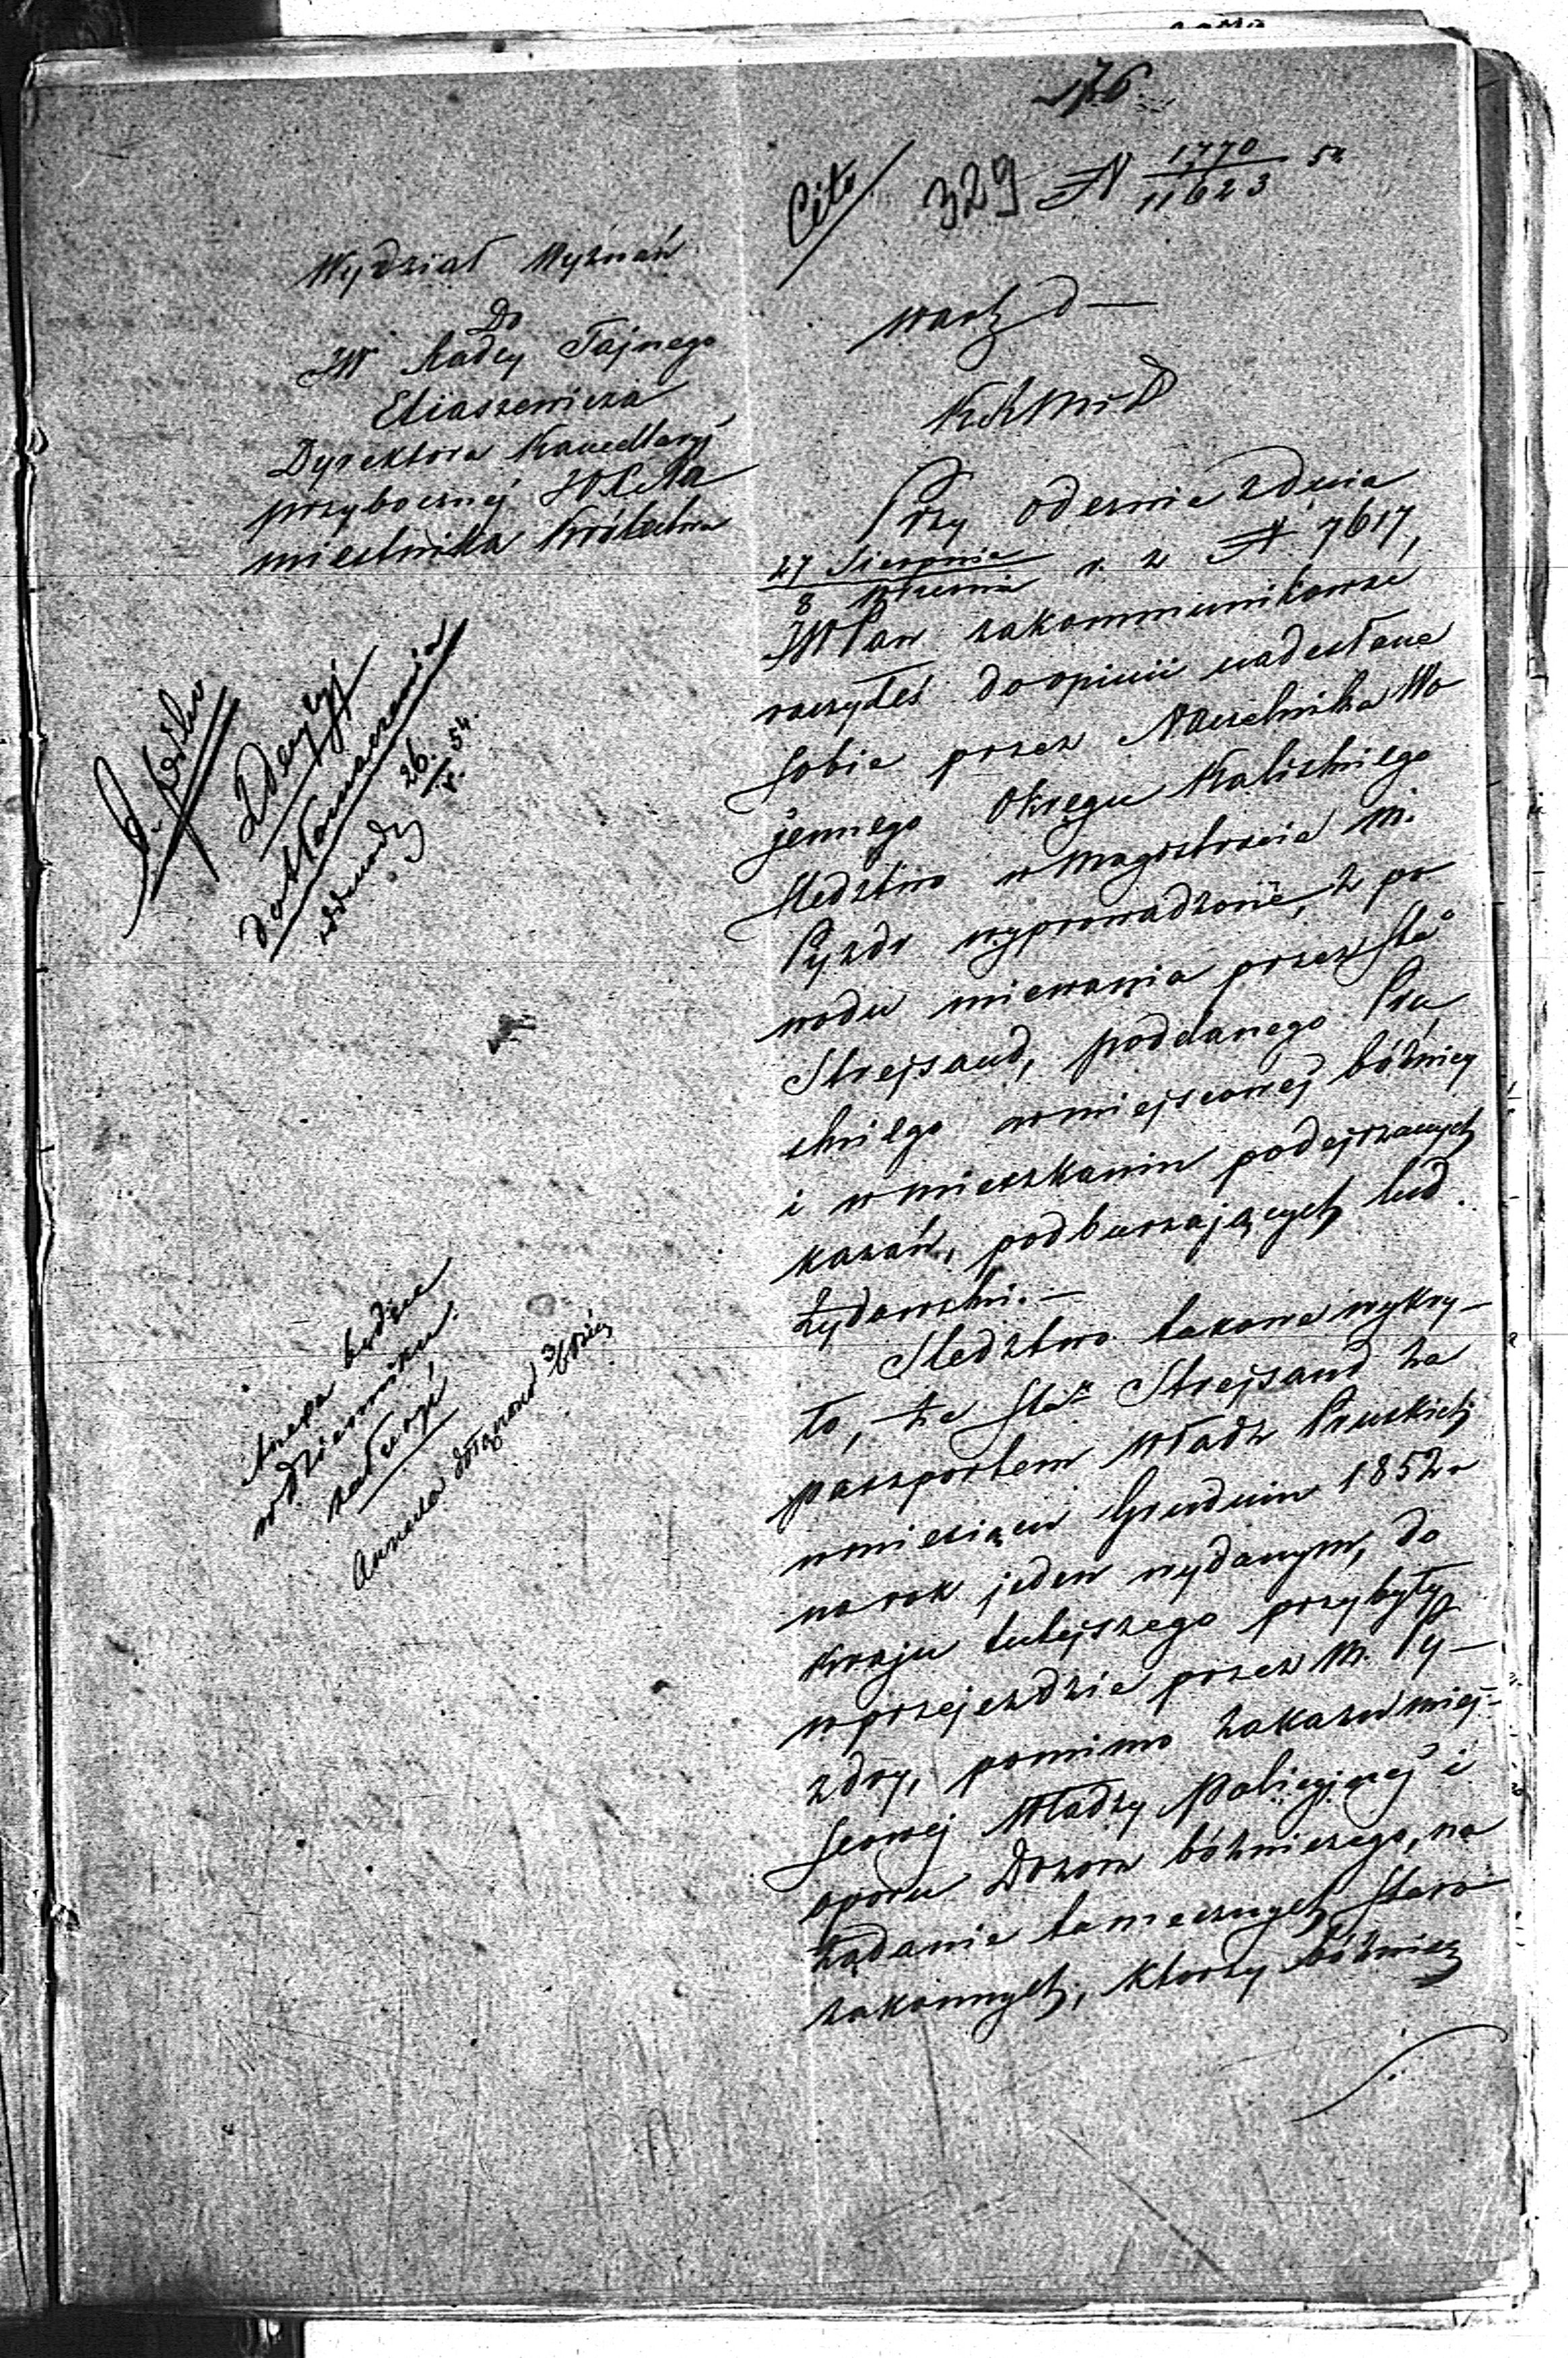 176
Cito
329 N 1770/11623 54
Wydział Wyznań
Do
JW Radcy Tajnego
Eliaszewicza
Dyrektora Kancellaryi
przybocznej JO Xcia Na
miestnika Królestwa
Warsz d —
Przy odezwie z dnia
27 Sierpnia / 8 Września r. z N 7617,
JW Pan zakommunikować
raczyłeś do opinii nadesłane
sobie przez Naczelnika Wo
jennego Okręgu Kaliskiego
śledztwo w Magistracie M.
Pyzdr wyprowadzone, z po
wodu miewania przez Stá
Strejsand, poddanego Pru
skiego w miejscowej bóżnicy
i w mieszkaniu podejrzanych
kazań, podburzających lud
żydowski. —
Śledztwo takowe wykry—
ło, że Stá Strejsand za
paszportem Władz Pruskich
w miesiącu Grudniu 1852 r
na rok jeden wydanym, do
kraju tutejszego przybyły
w przejeździe przez M. Py—
zdry, pomimo zakazu miej-
scowej Władzy Policyjnej i
oporu Dozoru bóżniczego, na
żądanie tamecznych Staro
zakonnych, którzy bóżnicę
Z decyzyi
do tłomaczenia
26/V. 54.
Anexa będące
w dzienniku
załączyć
Annexa dołączono